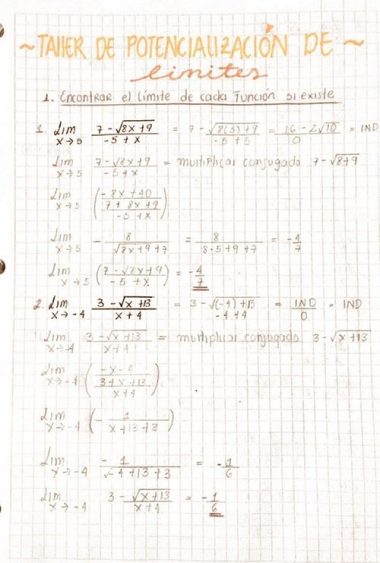 ~TALLER DE POTENCIALIZACIÓN DE~
limites
1. Encontrar el límite de cada función si existe
1. Lim x→5 7-√8x+9 / -5+x = 7-√8(5)+9 / -5+5 = / 0 = IND
Lim x→5 7-√8x+9 / -5+x = multiplicar conjugado 7-√8+9
Lim x→5 (-8x+40 / 7+8x+9 / -5+x)
Lim x→5 - 8 / √8x+9+7 = 8 / 8·5+9+7 = -4/7
Lim x→5 (7-√8x+9 / -5+x) = -4/7
2. Lim x→-4 3-√x+13 / x+4 = 3-√(-4)+13 / -4+4 = IND / 0 = IND
Lim x→-4 3-√x+13 / x+4 = multiplicar conjugado 3-√x+13
Lim x→-4 (-x-4 / 3+x+13 / x+4)
Lim x→-4 (- 1 / x+13+3)
Lim x→-4 - 1 / √-4+13+3 = -1/6
Lim x→-4 3-√x+13 / x+4 = -1/6